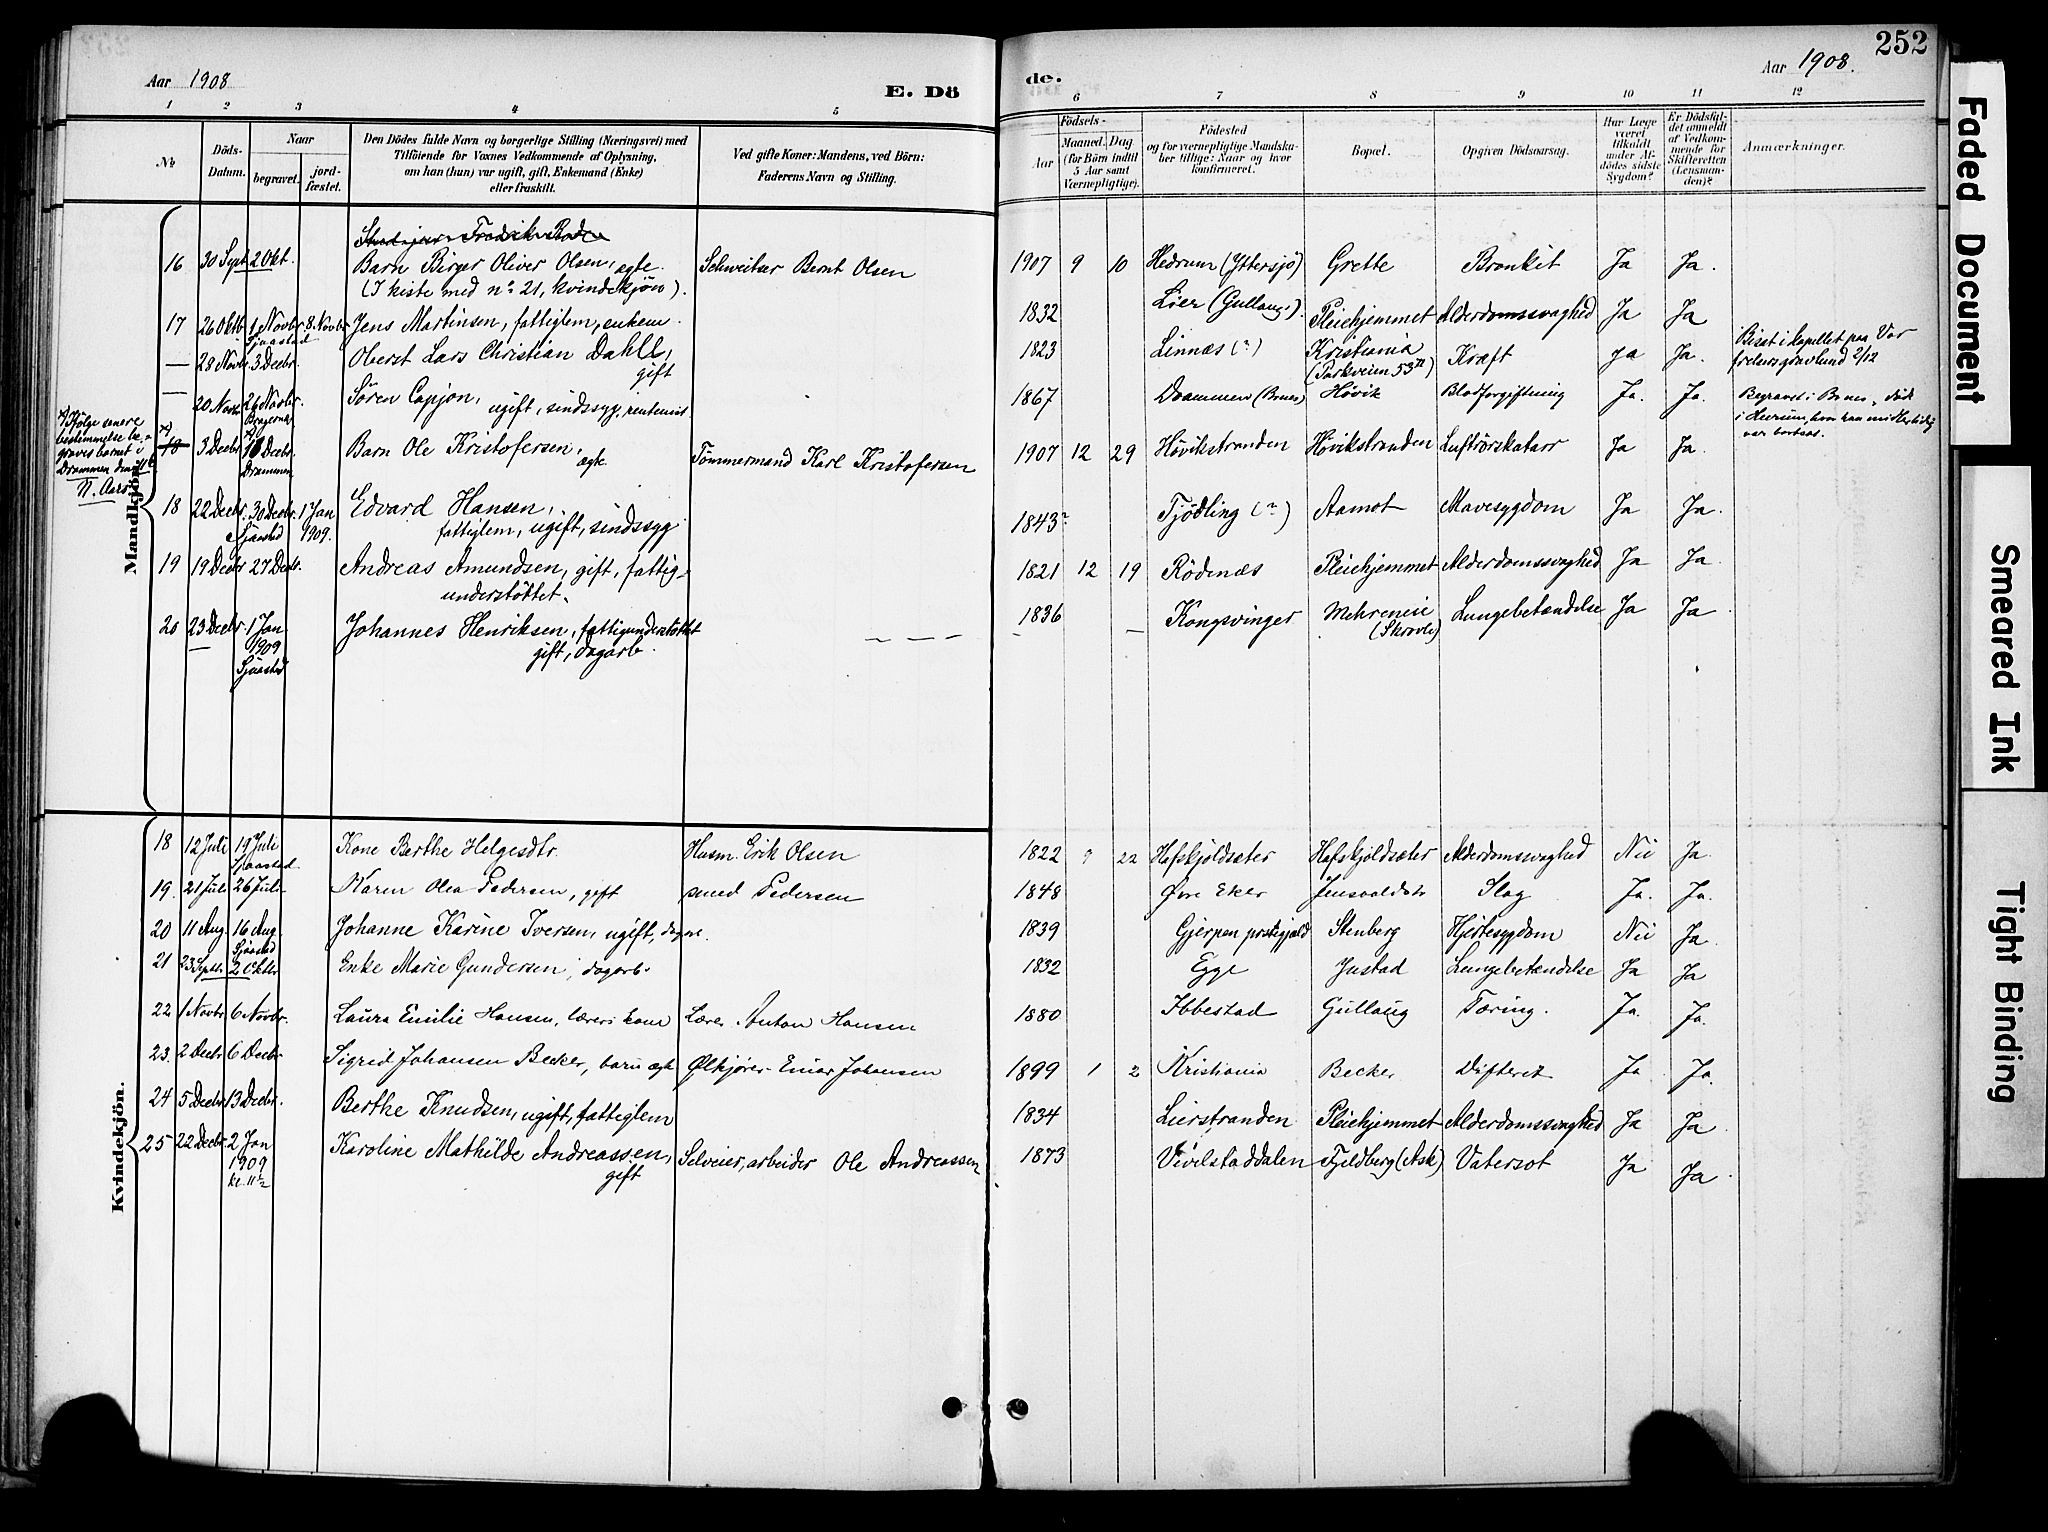 Aar 1908
E. Dö
de.
Aar 1908.
252
1 2 3 4 5 6 7 8 9 10 11 12
No
Döds-Datum.
Naar
begravet.
jord-fæstet.
Den Dödes fulde Navn og borgerlige Stilling (Næringsvei) med
Tilföiende for Voxnes Vedkommende af Oplysning,
om han (hun) var ugift, gift, Enkemand (Enke)
eller fraskilt.
Ved gifte Koner: Mandens, ved Börn:
Faderens Navn og Stilling.
Födsels-
Aar
Maaned. Dag
(for Börn indtil
5 Aar samt
Værnepligtige).
Födested
og for værnepligtige Mandska-
ber tillige: Naar og hvor
konfirmeret.
Bopæl.
Opgiven Dödsaarsag.
Har Læge
været
tilkaldt
under Af-
dödes sidste
Sygdom?
Er Dödsfal-
det anmeldt
af Vedkom-
mende for
Skifteretten
(Lensman-
den)?
Anmærkninger.
Mandkjön.
16 30 Sept 2 Okt. Barn Birger Oliver Olsen, ægte. Schweitser Bernt Olsen 1907 9 10 Hedrum (Yttersjö) Grette Bronkit Ja Ja.
(I kiste med no 21, kvindekjön).
17 26 Oktb 1 Novbr. 8. Novbr Jens Martinsen, fattiglem, enkem. 1832 Lier (Gullaug) Pleiehjemmet Alderdomssvaghed Ja Ja
Sjaastad
— 28 Novbr 3 Decbr. Oberst Lars Christian Dahll, gift 1823 Linnæs (?) Kristiania Kræft Ja Ja. Bisat i kapellet paa Vor
(Parkveien 53 II) frelsers gravlund 2/12
— 20 Novbr 26 Novbr. Sören Cappjon, ugift, sindssyg, rentenist 1867 Drammen (Brnes) Høvik Blodforgiftning Ja. Ja. Begravet i Brnes, död
Bragernæs
i Heerum, hvor han midlertidig
var bortsat.
x) Ifølge senere
bestemmelse be-
graves barnet i
Drammen den
N. Aars.
x) 18 3 Decbr Decbr. Barn Ole Kristofersen, ægte. Tömmermand Karl Kristofersen 1907 12 29 Høvikstranden Høvikstranden Luftrörskatarr Ja Ja.
Drammen
18 22 Decbr. 30 Decbr. 1 Jan Edvard Hansen, 1843? Tjödling (?) Aamot Mavesygdom Ja Ja.
Sjaastad 1909. fattiglem, ugift, sindssyg
19 19 Decbr 27 Decbr. Andreas Amundsen, gift, fattig- 1821 12 19 Rödenæs Pleiehjemmet Alderdomssvaghed Ja Ja.
understöttet.
20 23 Decbr. 1 Jan Johannes Henriksen, fattigunderstöttet — — — 1836 — Kongsvinger Mehreneie Lungebetændelse Ja Ja
1909 gift, dagarb. (Skrovle)
Sjaastad
Kvindekjön.
18 12 Juli 19 Juli Kone Berthe Helgesdtr. Husm. Erik Olsen 1822 9 22 Hafskjoldsæter Hafskjoldsæter Alderdomssvaghed Nei Ja.
Sjaastad
19. 21 Juli 26 Juli Karen Olea Pedersen, gift smed Pedersen 1848 Øvre Eker Slag Ja. Ja.
20 11 Aug. 16 Aug. Johanne Karine Iversen, ugift, 1839 Gjerpen prstgjæld Stenberg Hjertesygdom Nei Ja.
Sjaastad
21 23 Sept. 2 Oktbr Enke Marie Gundersen, dagarb. 1832 Egge Justad Lungebetændelse Ja Ja
22 1 Novbr 6 Novbr. Laura Emilie Hansen, lærers kone Lærer Anton Hansen 1880 Ibbestad Gullaug Tæring. Ja. Ja.
23. 2 Decbr 6 Decbr Sigrid Johansen Becker, barn ægte Ølkjörer Einar Johansen 1899 1 2 Kristiania Becker Difterit Ja Ja.
24 5 Decbr 13 Decbr. Berthe Knudsen, ugift, fattiglem 1834 Lierstranden Pleiehjemmet Alderdomssvaghed Ja Ja
25 22 Decbr. 2 Jan Karoline Mathilde Andreassen, Selveier, arbeider Ole Andreassen 1873 Vivelstaddalen Fjeldberg (Ask) Vatersot Ja Ja.
1909 gift
kl. 11 1/2
Faded Document
Smeared Ink
Tight Binding